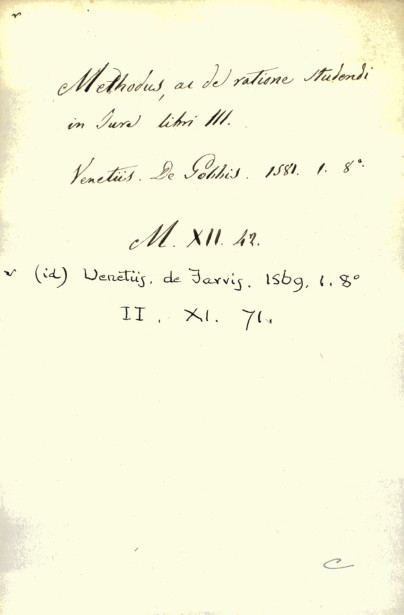 Methodus, ac de ratione studendi
in Jure libri III.
Venetiis. De Gobbis. 1581. 1. 8°.
M. XII. 42.
v (id) Venetiis. de Farris. 1569. 1. 8°
II. XI. 71.
C